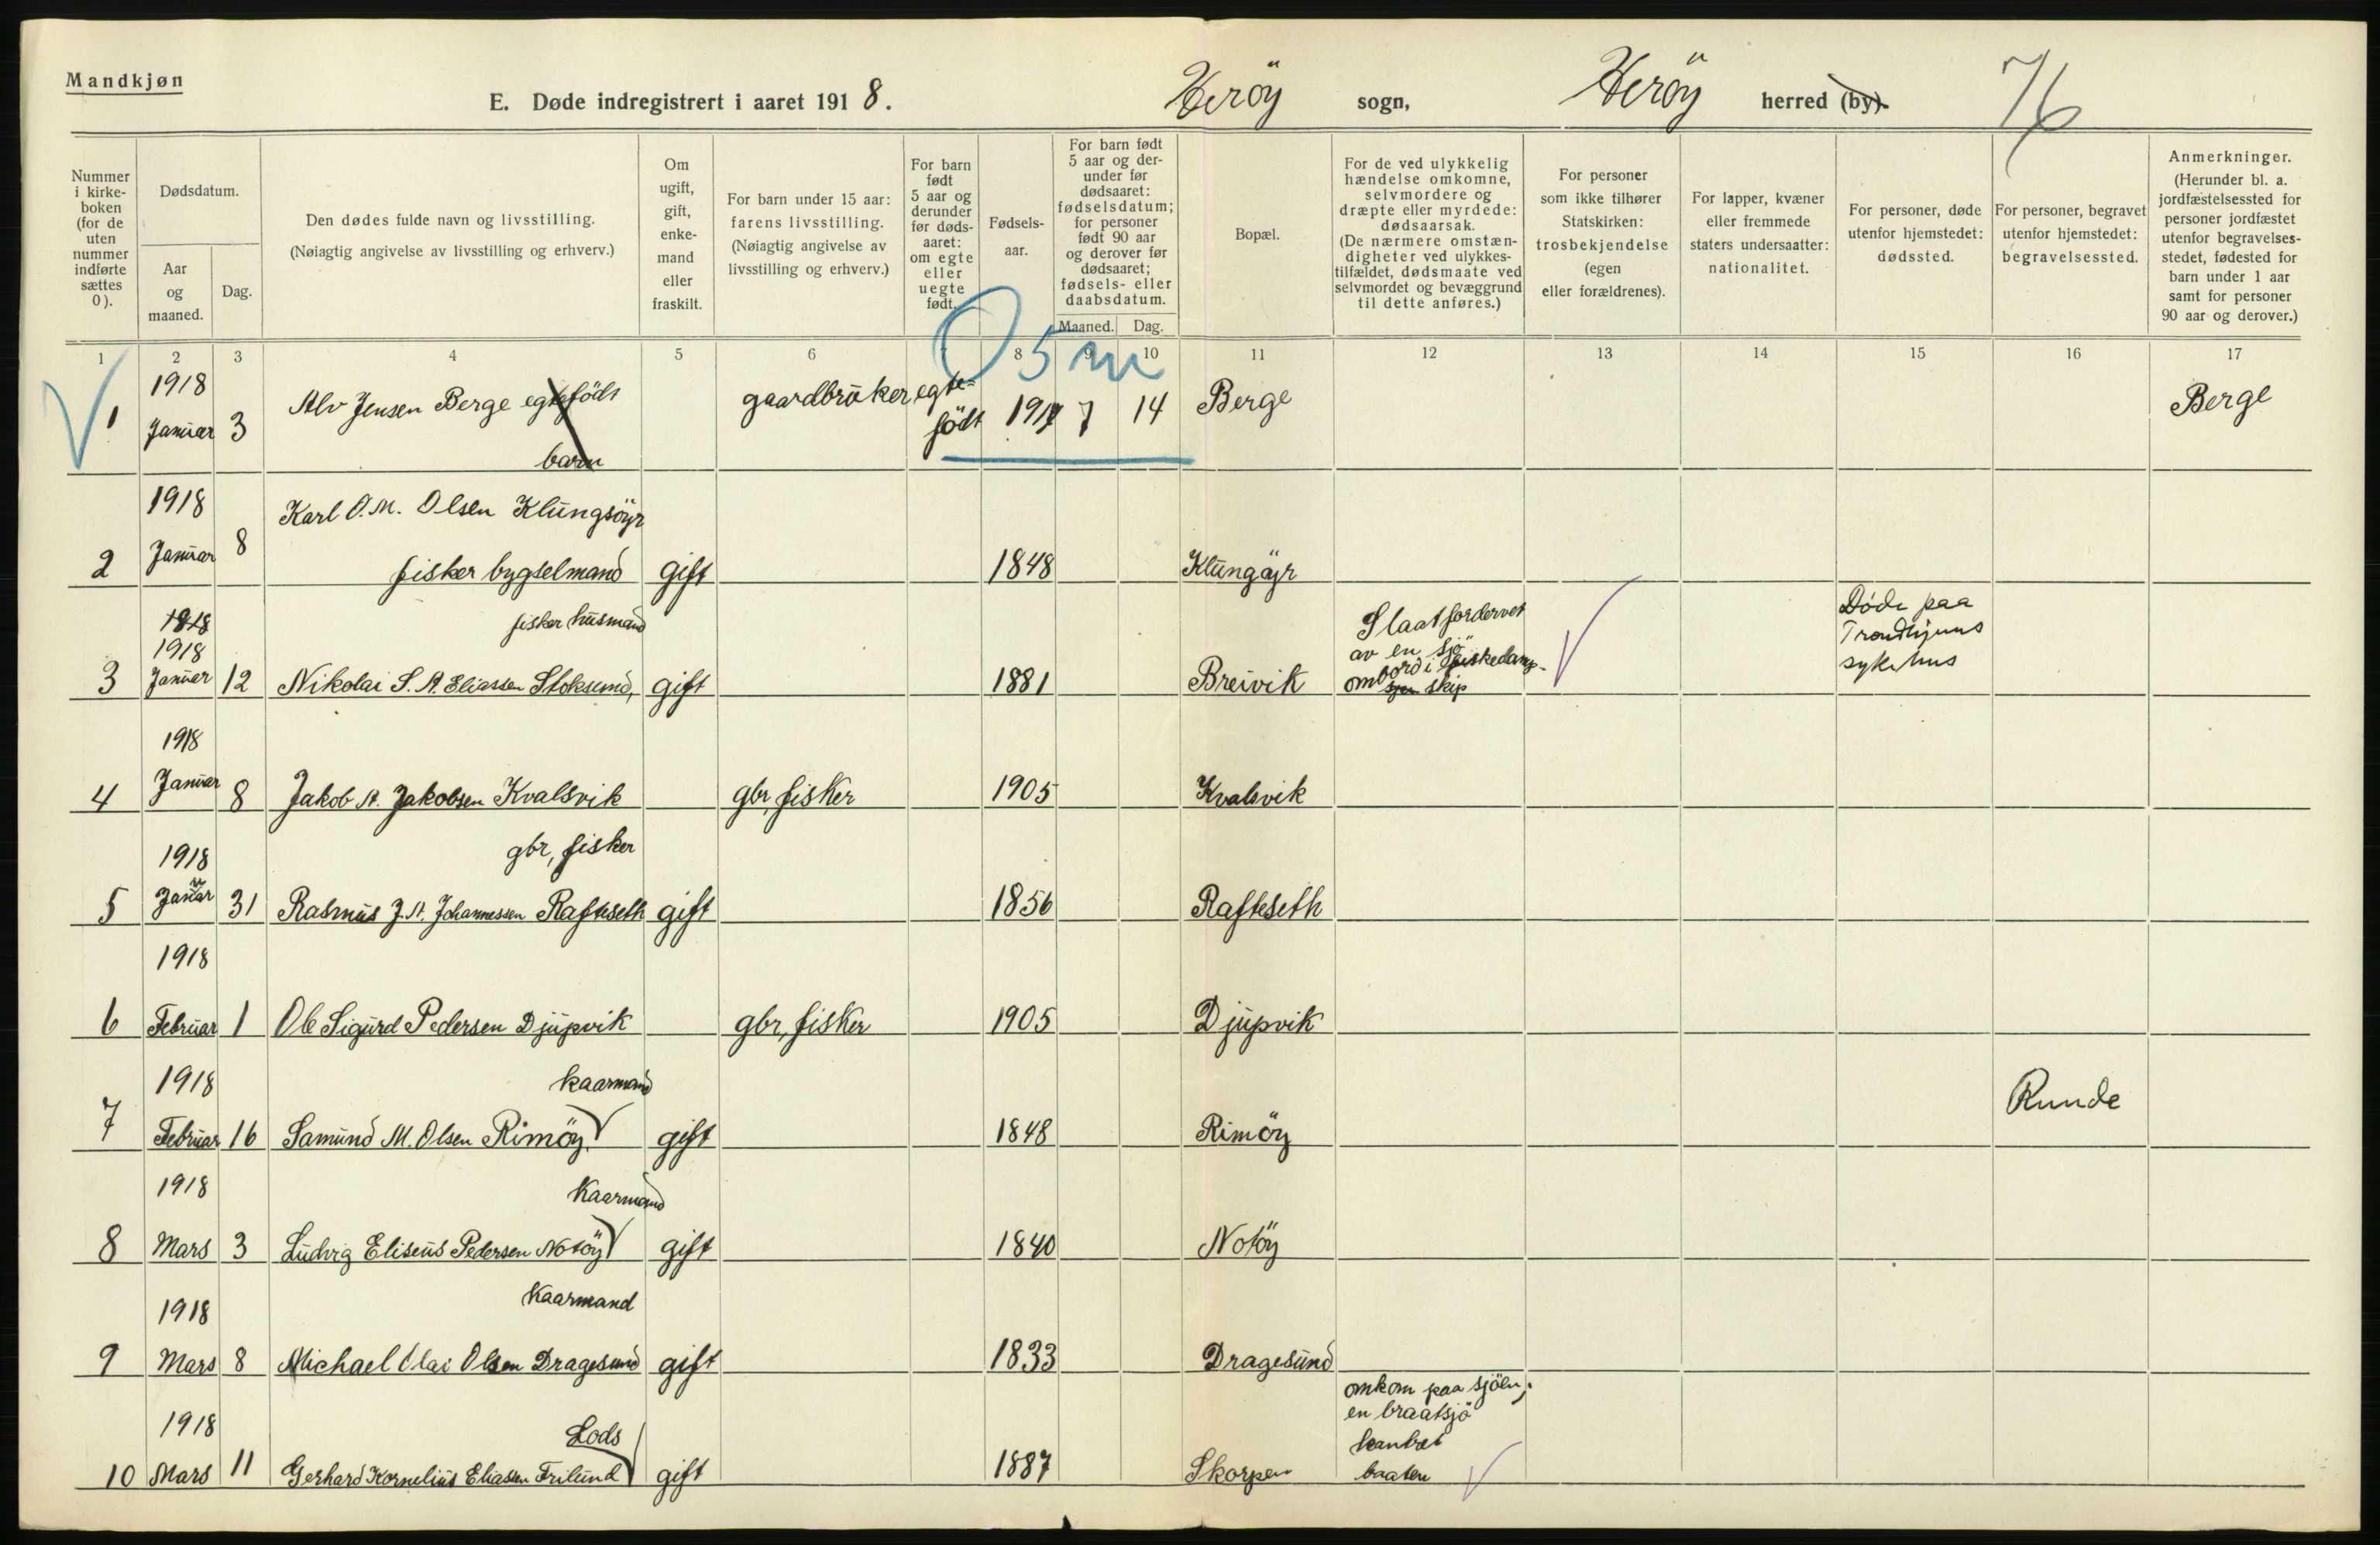 Mandkjøn
E. Døde indregistrert i aaret 1918. Heröy sogn, Heröy herred (by). 76
Nummer i kirkeboken (for de uten nummer indførte sættes 0).
Dødsdatum.
Aar og maaned.
Dag.
Den dødes fulde navn og livsstilling.
(Nøiagtig angivelse av livsstilling og erhverv.)
Om ugift, gift, enkemand eller fraskilt.
For barn under 15 aar: farens livsstilling.
(Nøiagtig angivelse av livsstilling og erhverv.)
For barn født 5 aar og derunder før dødsaaret: om egte eller uegte født.
Fødselsaar.
For barn født 5 aar og derunder før dødsaaret: fødselsdatum; for personer født 90 aar og derover før dødsaaret; fødsels- eller daabsdatum.
Maaned. Dag.
Bopæl.
For de ved ulykkelig hændelse omkomne, selvmordere og dræpte eller myrdede: dødsaarsak.
(De nærmere omstændigheter ved ulykkestilfældet, dødsmaate ved selvmordet og bevæggrund til dette anføres.)
For personer som ikke tilhører Statskirken: trosbekjendelse (egen eller forældrenes).
For lapper, kvæner eller fremmede staters undersaatter: nationalitet.
For personer, døde utenfor hjemstedet: dødssted.
For personer, begravet utenfor hjemstedet: begravelsessted.
Anmerkninger.
(Herunder bl. a. jordfæstelsessted for personer jordfæstet utenfor begravelsesstedet, fødested for barn under 1 aar samt for personer 90 aar og derover.)
1 2 3 4 5 6 7 8 9 10 11 12 13 14 15 16 17
05 m
1918
1 Januar 3 Alv Jensen Berge egtefödt barn gaardbruker egte-födt 1917 7 14 Berge Berge
1918
Karl O. M. Olsen Klungsöyr
2 Januar 8 fisker bygselmand gift 1848 Klungöyr
1918
1918 fisker husmand
3 Januar 12 Nikolai S. A. Eliassen Stoksund, gift 1881 Breivik
Slaat fordervet
av en sjö
ombord i fiskedamp-
skip
Döde paa
Trondhjems
sykehus
1918
4 Januar 8 Jakob A. Jakobsen Kvalsvik gbr, fisker 1905 Kvalsvik
1918 gbr, fisker
5 Januar 31 Rasmus J. A. Johannessen Rafteseth gift 1856 Rafteseth
1918
6 Februar 1 Ole Sigurd Pedersen Djupvik gbr, fisker 1905 Djupvik
1918 kaarmand
7 Februar 16 Samund M. Olsen Rimöy gift 1848 Rimöy Runde
1918 Kaarmand
8 Mars 3 Ludvig Eliseus Pedersen Notöy gift 1840 Notöy
1918 Kaarmand
9 Mars 8 Michael Olai Olsen Dragesund gift 1833 Dragesund
1918 Lods
10 Mars 11 Gerhard Kornelius Eliassen Frilund gift 1887 Skorpen
omkom paa sjöen;
en braatsjö
baaten